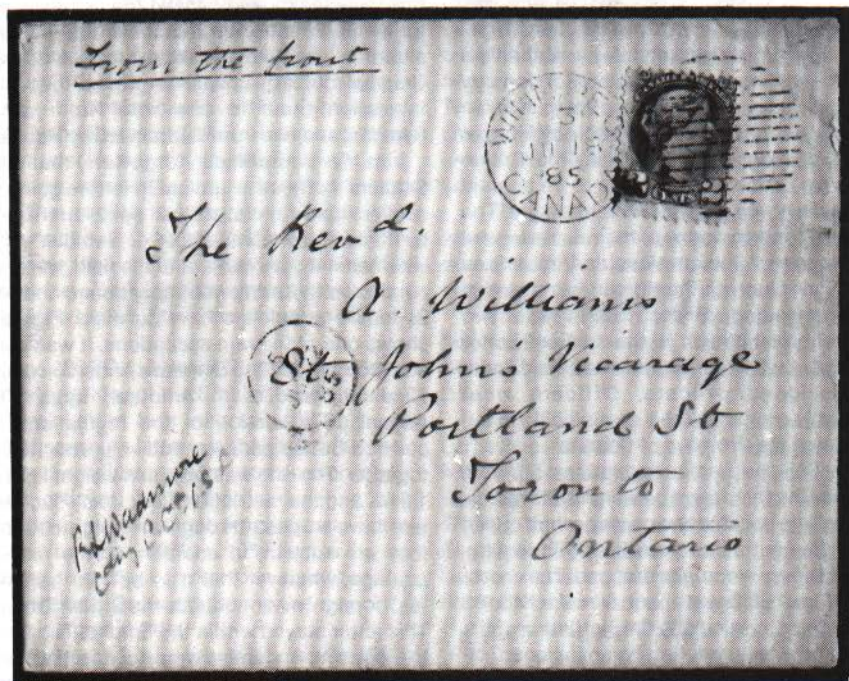 From the front
WINNIPEG
3
JU 15
85
CANADA
The Revd.
A. Williams
St. John's Vicarage
Portland St
Toronto
Ontario
R L Wadmore
Cdg C Co I S C